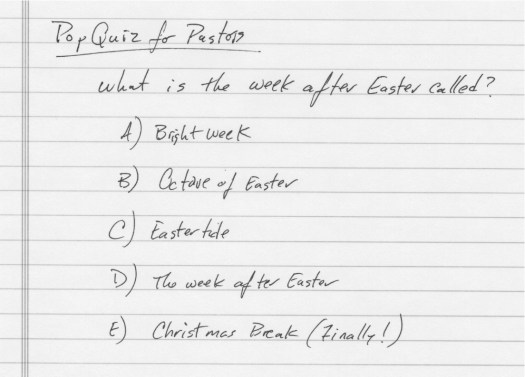 Pop Quiz for Pastors
What is the week after Easter called?
A) Bright week
B) Octave of Easter
C) Eastertide
D) The week after Easter
E) Christmas Break (Finally!)